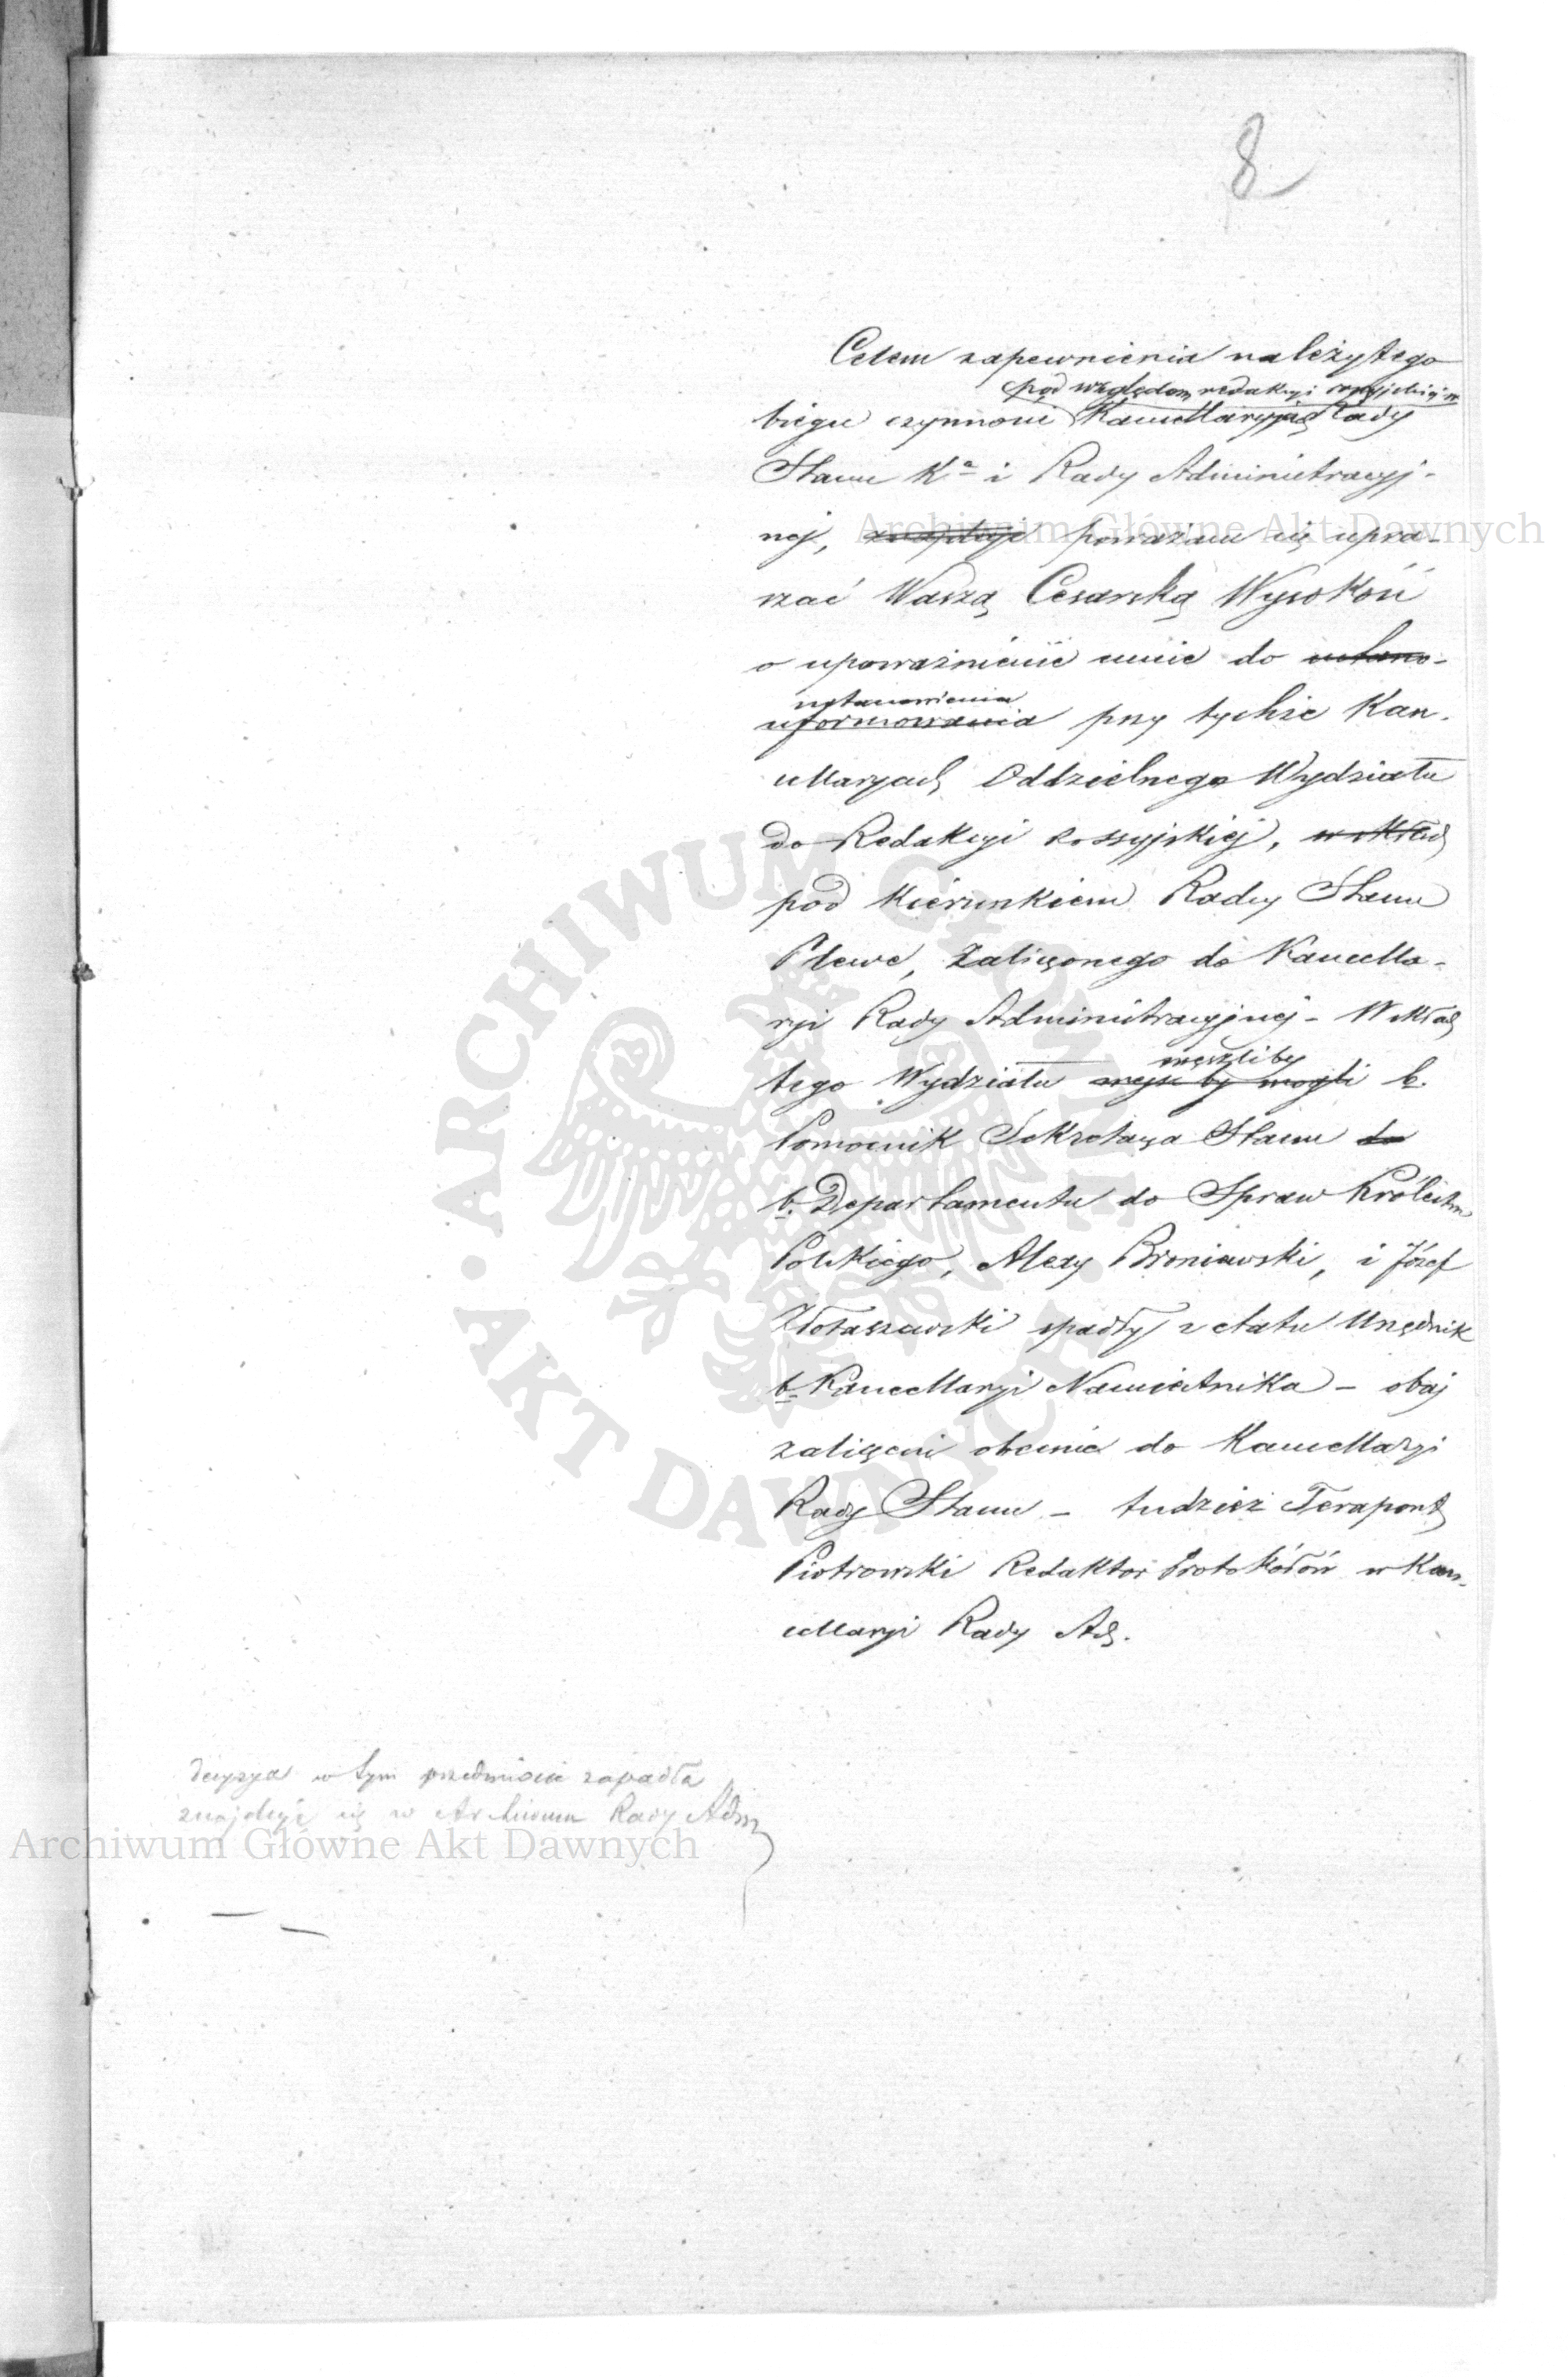 8
Celem zapewnienia należytego
pod względem redakcyi rossyjskiej w
biegu czynności Kancellaryjach Rady
Stanu K<sup>a</sup> i Rady Administracyj-
nej, znajduję poważam się upra-
szać Waszą Cesarską Wysokość
o upoważnienie mnie do ustano-
ustanowienia
uformowania przy tychże Kan-
cellaryach Oddzielnego Wydziału
do Redakcyi Rossyjskiej, w skład
pod kierunkiem Radcy Stanu
Plewe, Zaliczonego do Kancella-
ryi Rady Administracyjnej - W skład
weszliby
tego Wydziału wejść by mogli b.
Pomocnik Sekretarza Stanu do
b. Departamentu do Spraw Królestwa
Polskiego, Alexy Broniewski, i Józef
Złotaszewski spadły z etatu Urzędnik
b. Kancellaryi Namiestnika - obaj
zaliczeni obecnie do Kancellaryi
Rady Stanu - tudzież Terapont
Piotrowski Redaktor Protokółów w Kan-
cellaryi Rady Ad.
Decyzya w tym przedmiocie zapadła
znajduje się w Archiwum Rady Adm
Archiwum Główne Akt Dawnych
Archiwum Główne Akt Dawnych
ARCHIWUM GŁÓWNE AKT DAWNYCH